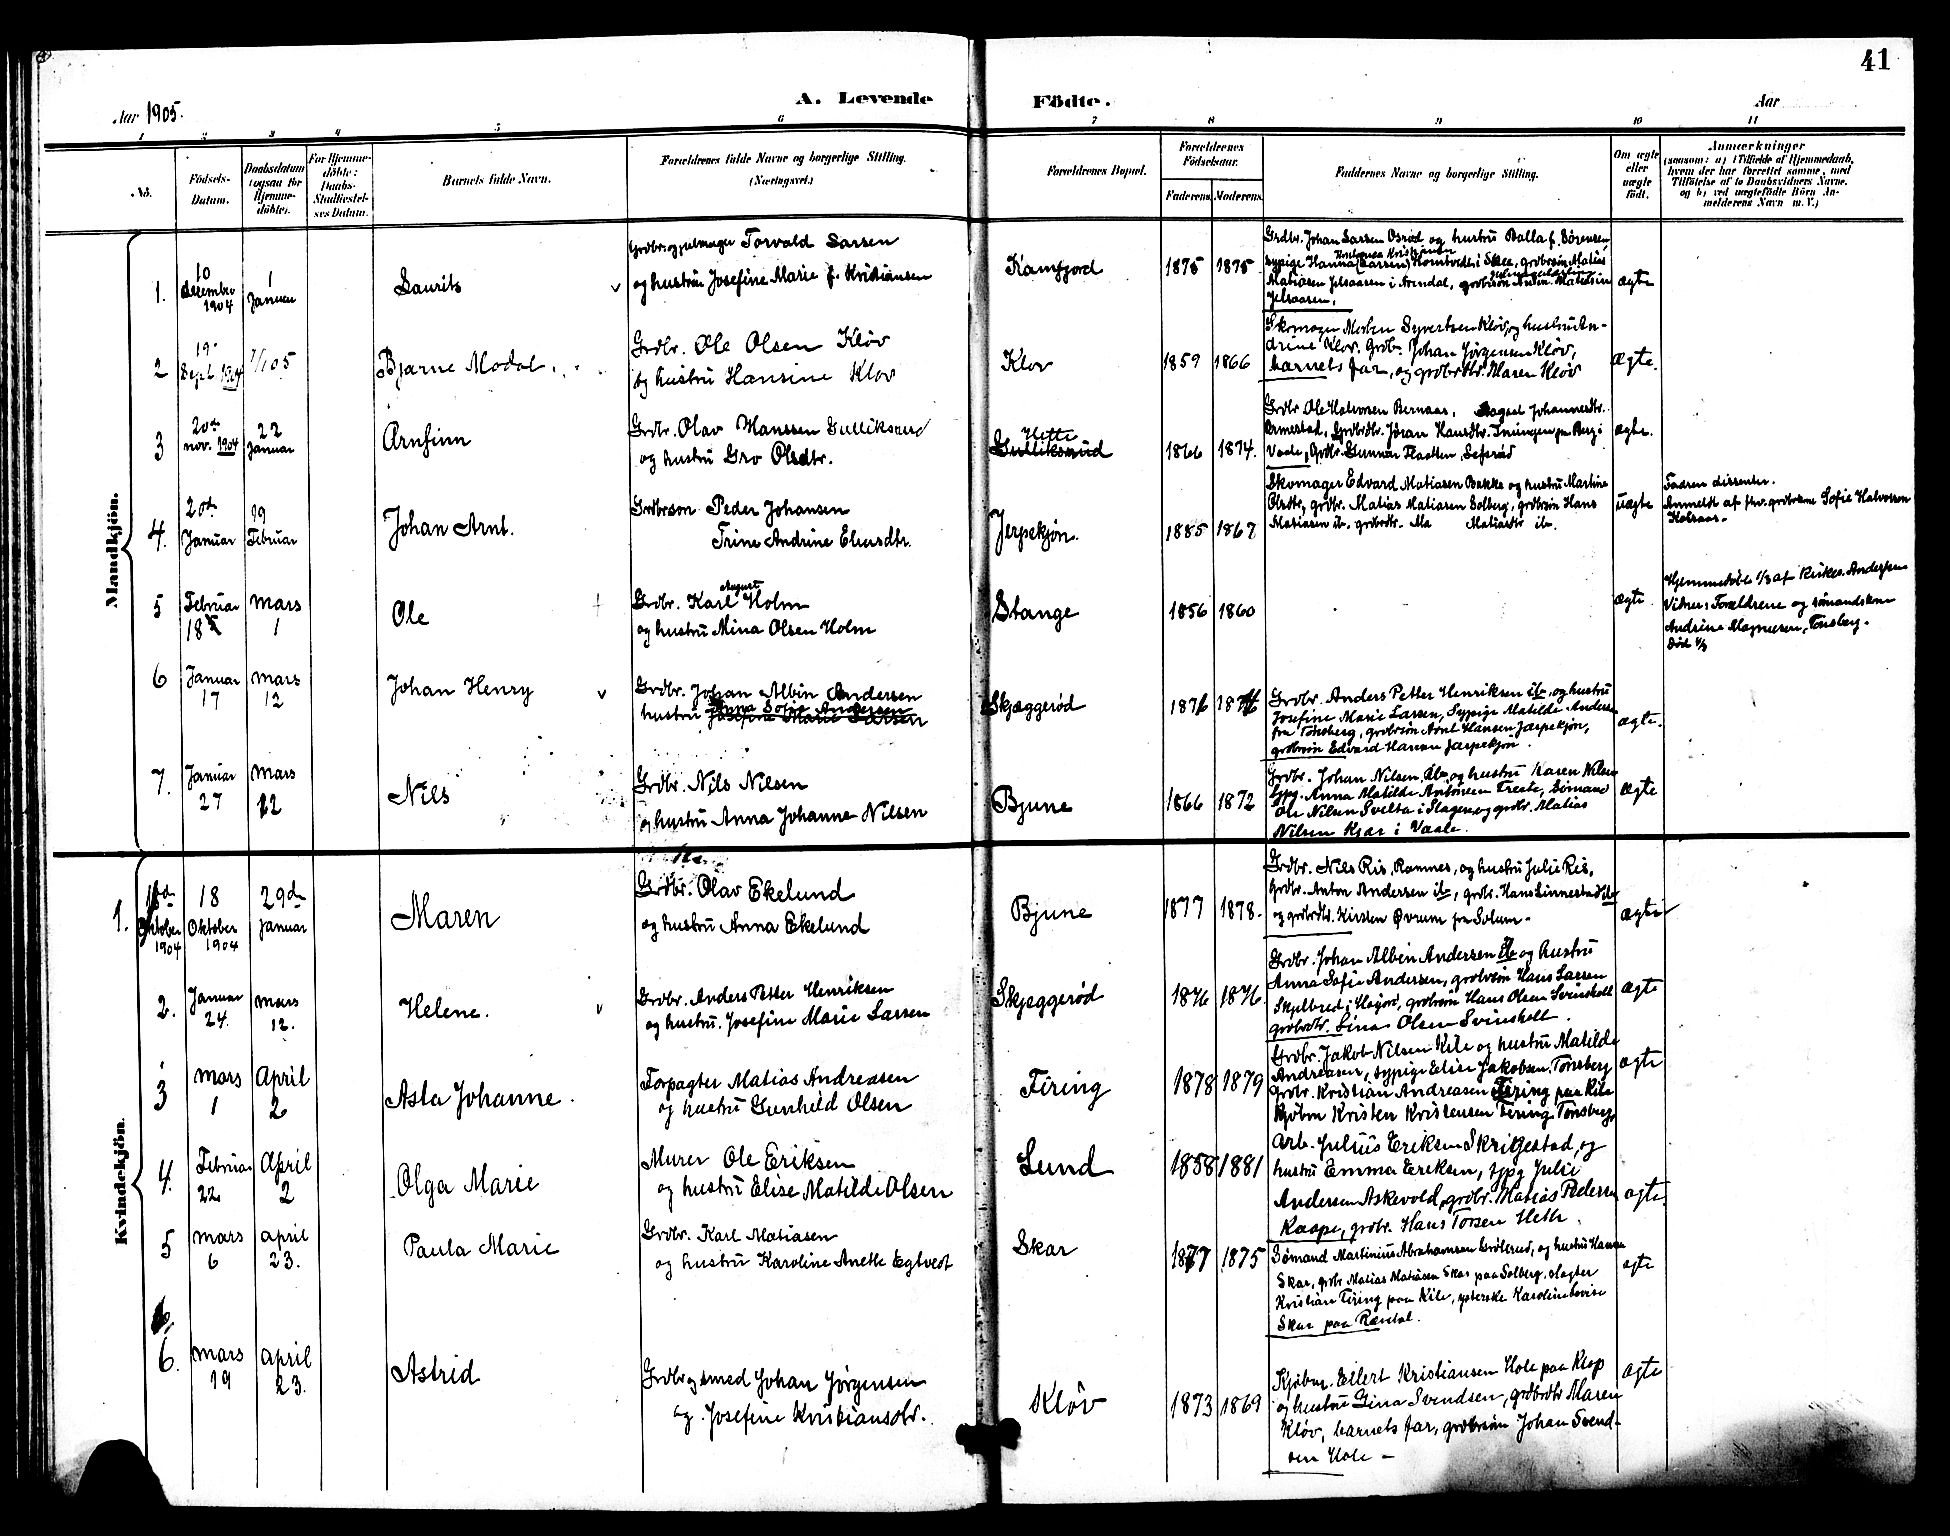 41
Aar 1905.
A. Levende Födte.
Aar
1 2 3 4 5 6 7 8 9 10 11
No.
Födsels-Datum.
Daabsdatum (ogsaa for Hjemme-döbte).
For Hjemme-döbte: Daabs-Stadfæstel-ses Datum.
Barnets fulde Navn.
Forældrenes fulde Navne og borgerlige Stilling. (Næringsvei.)
Forældrenes Bopæl.
Forældrenes Födselsaar.
Faderens. Moderens.
Faddernes Navne og borgerlige Stilling.
Om ægte eller uægte födt.
Anmærkninger
(saasom: a) i Tilfælde af Hjemmedaab,
hvem der har forrettet samme, med
Tilföielse af to Daabsvidners Navne.
og b) ved uægtefödte Börn An-
melderens Navn m. V.)
Mandkjön.
1. 10 december 1904
1 Januar
Laurits
Grdbr. og Torvald Larsen
og hustru Josefine Marie f. Kristiansen
Kamfjord
1875 1875
Grdbr. Johan Larsen Osrød og hustru Balla f. Sørensen,
sypige Hanna (Larsen) i Skee, grdbrsøn Matias
Matiasen Jelsaasen i Arendal, grdbrsøn Anton Matiasen
Jelsaasen.
ægte
2 19 Sept 1904
1/1 05
Bjarne Modal
Grdbr. Ole Olsen Kløv
og hustru Hansine Kløv
Klov
1859 1866
Skomager Morten Syvertsen Kløv, og hustru An-
drine Kløv. Grdbr. Johan Jørgensen Kløv,
barnets far, og grdbrdtr. Maren Kløv
ægte.
3 20de nov. 1904
22 Januar
Arnfinn
Grdbr. Olav Hanssen Gulliksrud
og hustru Gro Olsdtr.
Hette
Gulliksrud
1866 1874.
Grdbr Ole Halvorsen Bernaas, Johannesdtr.
Ormestad, Grdbrdtr. Jöran Hansdtr. paa Berg i
Vaale, Grdbr. Gunnar Flaatten, Sefsröd
ægte.
4. 20de Januar
19 Februar
Johan Arnt.
Grdbrson Peder Johansen
Trine Andrine Elversdtr.
Jerpekjøn.
1885 1867
Skomager Edvard Matiasen Bakke og hustru Martine
Olsdtr, grdbr. Matias Matiasen Solberg, grdbrsön Hans
Matiasen ib. grdbrdtr. Ma Matiasdtr ib.
uægte
Faderen dissenter.
Anmeldt af fhv. grdbrkone Sofie Halvorsen
Holsaas.
5 Februar 18
Mars 1
Ole
Grdbr. Karl August Holm
og hustru Mina Olsen Holm
Stange
1856 1860
ægte
Hjemmedøbt 1/3 af Andersen
Vidner: Forældrene og sømandskone
Andrine Magnussen, Tönsberg.
Död
6 Januar 17
Mars 12
Johan Henry
Grdbr. Johan Albin Andersen
Anna Sofie Andersen
hustru Josefine Marie Larsen
Skjæggerød
1876 1876
Grdbr. Anders Petter Henriksen ib, og hustru
Josefine Marie Larsen, Sypige Matilde Andersen
fra Tönsberg, grdbrsön Arnt Hansen Jærpekjön,
grdbrsön Edvard Hansen Jærpekjön.
ægte.
7. Januar 27
Mars 12
Nils
Grdbr. Nils Nilsen
og hustru Anna Johanne Nilsen
Bjune
1866 1872
Grdbr. Johan Nilsen, ib, og hustru Karen Nilsen
Sypg. Anna Matilde Antonsen Treste, Sömand
Ole Nilsen Svelta i Slagen, og grdbr. Matias
Nilsen Kjær i Vaale.
ægte
Kvindekjön.
1. Oktober 1904
18 Oktober 1904
29de Januar
Maren
Grdbr. Olav Ekelund
og hustru Anna Ekelund
Bjune
1877 1878.
Grdbr. Nils Ris, Ramnes, og hustru Julie Ris,
Grdbr. Anton Andersen ib, grdbr. Hans Linnestad ib
og grdbrdtr. Kirsten Øvrum fra Solum.
ægte
2. Januar 24.
Mars 12.
Helene.
Grdbr. Anders Petter Henriksen
og hustru Josefine Marie Larsen
Skjæggerød
1876 1876.
Grdbr. Johan Albin Andersen ib og hustru
Anna Sofie Andersen, grdbrsön Hans Larsen
Skjelbred i Höijord, grdbrsön Hans Olsen Svinsholt
grdbrdtr. Lina Olsen Svinsholt.
ægte
3 Mars 1
April 2
Asta Johanne.
Forpagter Matias Andreasen
og hustru Gunhild Olsen
Firing
1878 1879
Grdbr. Jakob Nilsen Kile og hustru Matilde
Andreasen, sypige Elise Jakobsen, Tönsberg
Grdbr. Kristian Andreasen Firing paa Kile
Kjöbm Kristen Kristensen Firing Tönsberg
ægte
4. Februar 22
April 2
Olga Marie
Murer Ole Eriksen
og hustru Elise Matilde Olsen
Lund
1858 1881
Arb. Julius Eriksen Skrijestad, og
hustru Emma Eriksen, sypg Julie
Andersen Askevold, grdbr. Matias Pedersen
Kaape, grdbr. Hans Torsen Heth.
ægte.
5 Mars 6
April 23.
Paula Marie
Grdbr. Karl Matiasen
og hustru Karoline Anette Egtvedt
Skar
1877 1875
Sömand Martinius Abrahamsen Grölsrud, og hustru Hanna
Skar, grdbr Matias Matiasen Skar paa Solberg, slagter
Kristian Firing paa Kile, ysterske Karoline Lovise
Skar paa Ramdal.
ægte
6. Mars 19
April 23.
Astrid
Grdbr og smed Johan Jørgensen
og Josefine Kristiansdtr.
Kløv
1873 1869
Kjöbm. Eilert Kristiansen Hole paa Klop
og hustru Gina Svendsen, grdbrdtr Maren
Kløv, barnets far, grdbrsøn Johan Svend-
sen Hole –
ægte